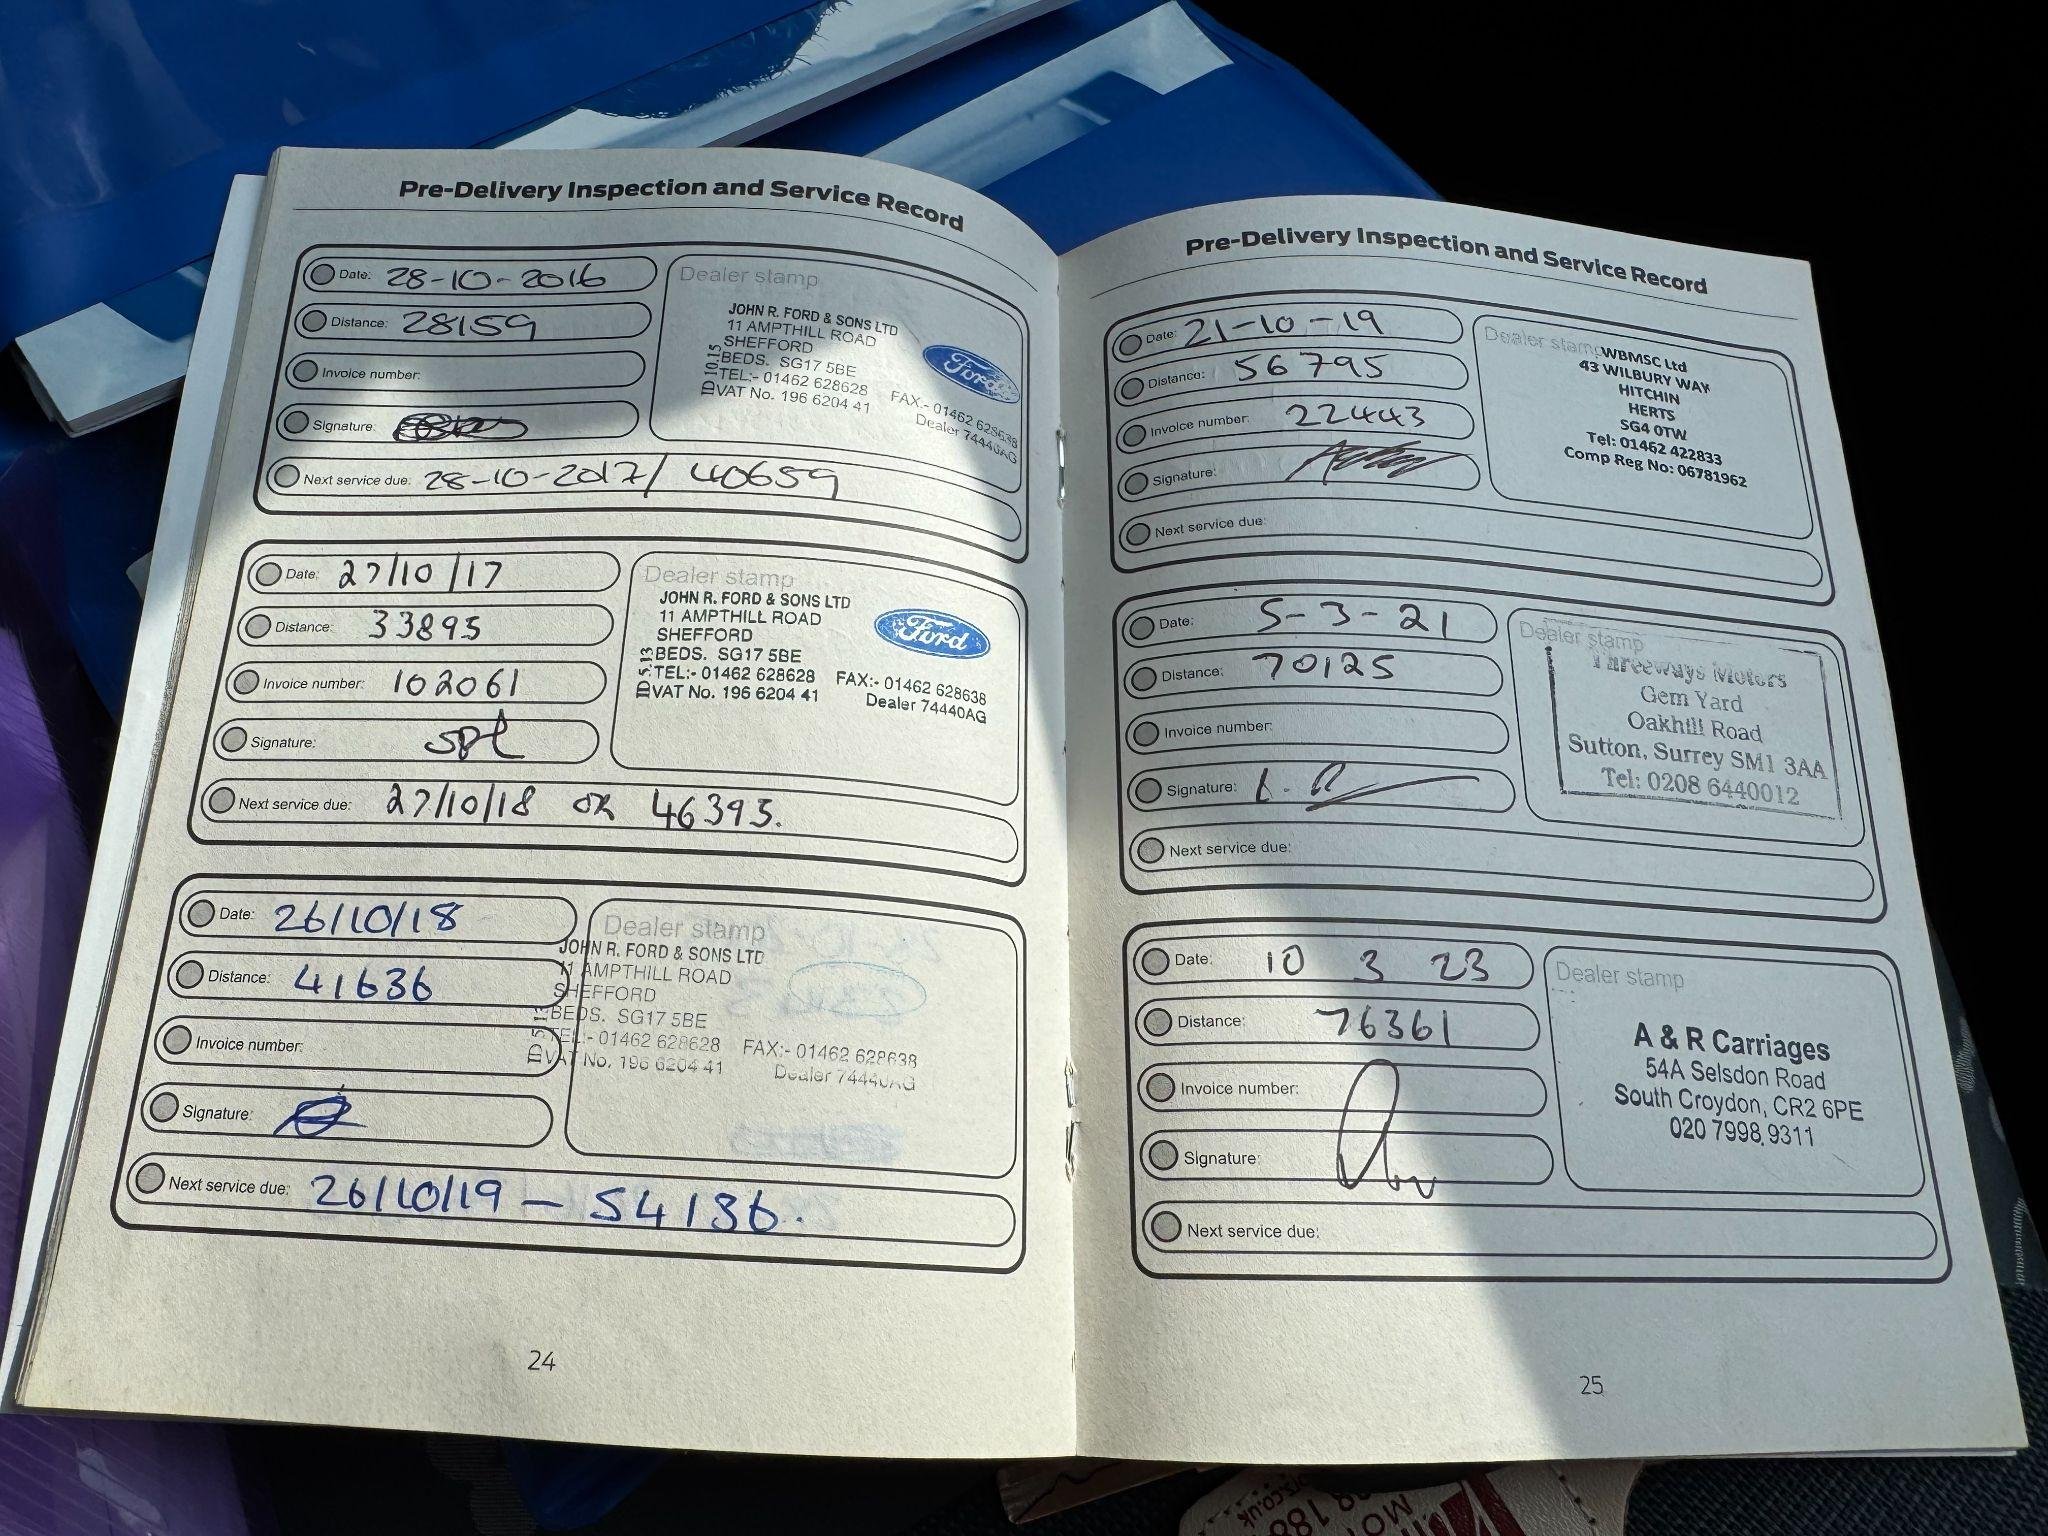 Pre-Delivery Inspection and Service Record
Date: 28-10-2016
Distance: 28159
Invoice number:
Signature:
Next service due: 28-10-2017/ 40659
Dealer stamp
JOHN R. FORD & SONS LTD
11 AMPTHILL ROAD
SHEFFORD
BEDS. SG17 5BE
TEL:- 01462 628628 FAX:- 01462 628638
VAT No. 196 6204 41 Dealer 74440AG
ID 10.15
Ford
Date: 27/10/17
Distance: 33895
Invoice number: 102061
Signature:
Next service due: 27/10/18 OR 46395.
Dealer stamp
JOHN R. FORD & SONS LTD
11 AMPTHILL ROAD
SHEFFORD
BEDS. SG17 5BE
TEL:- 01462 628628 FAX:- 01462 628638
VAT No. 196 6204 41 Dealer 74440AG
ID 5.13
Ford
Date: 26/10/18
Distance: 41636
Invoice number:
Signature:
Next service due: 26/10/19 - 54136.
Dealer stamp
JOHN R. FORD & SONS LTD
11 AMPTHILL ROAD
SHEFFORD
BEDS. SG17 5BE
TEL:- 01462 628628 FAX:- 01462 628638
VAT No. 196 6204 41 Dealer 74440AG
ID 5.13
24
Pre-Delivery Inspection and Service Record
Date: 21-10-19
Distance: 56795
Invoice number: 22443
Signature:
Next service due:
Dealer stamp
WBMSC Ltd
43 WILBURY WAY
HITCHIN
HERTS
SG4 0TW
Tel: 01462 422833
Comp Reg No: 06781962
Date: 5-3-21
Distance: 70125
Invoice number:
Signature:
Next service due:
Dealer stamp
Threeways Motors
Gem Yard
Oakhill Road
Sutton, Surrey SM1 3AA
Tel: 0208 6440012
Date: 10 3 23
Distance: 76361
Invoice number:
Signature:
Next service due:
Dealer stamp
A & R Carriages
54A Selsdon Road
South Croydon, CR2 6PE
020 7998 9311
25